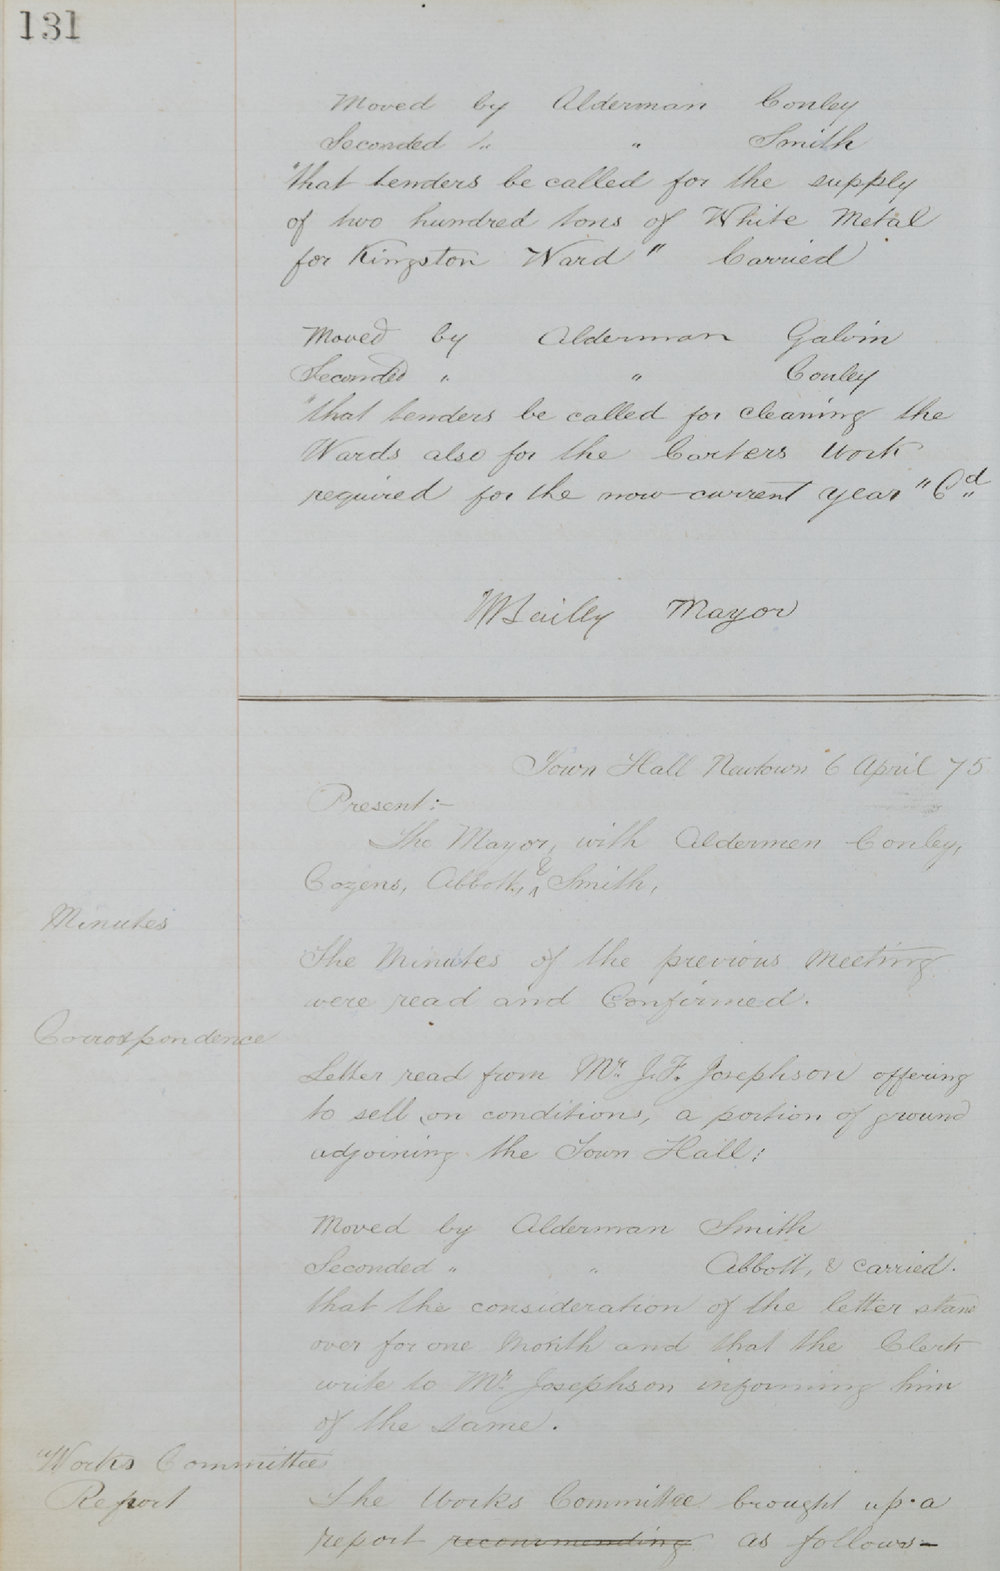 131
Moved by Alderman Conley
Seconded " " Smith
"that tenders be called for the supply
of two hundred tons of White Metal
for Kingston Ward" Carried
Moved by Alderman Galvin
Seconded " " Conley
"that tenders be called for cleaning the
Wards also for the Carters Work
required for the now current year" Cd
WBailey Mayor
Town Hall Newtown 6 April 75
Present:-
The Mayor, with Aldermen Conley,
Cozens, Abbott, & Smith,
Minutes
The Minutes of the previous Meeting
were read and Confirmed.
Correspondence
Letter read from Mr. J.F. Josephson offering
to sell, on conditions, a portion of ground
adjoining the Town Hall:
Moved by Alderman Smith
Seconded " " Abbott, & carried.
that the consideration of the letter stand
over for one Month and that the Clerk
write to Mr. Josephson informing him
of the same.
Works Committee
Report
The Works Committee brought up a
report recommending as follows-